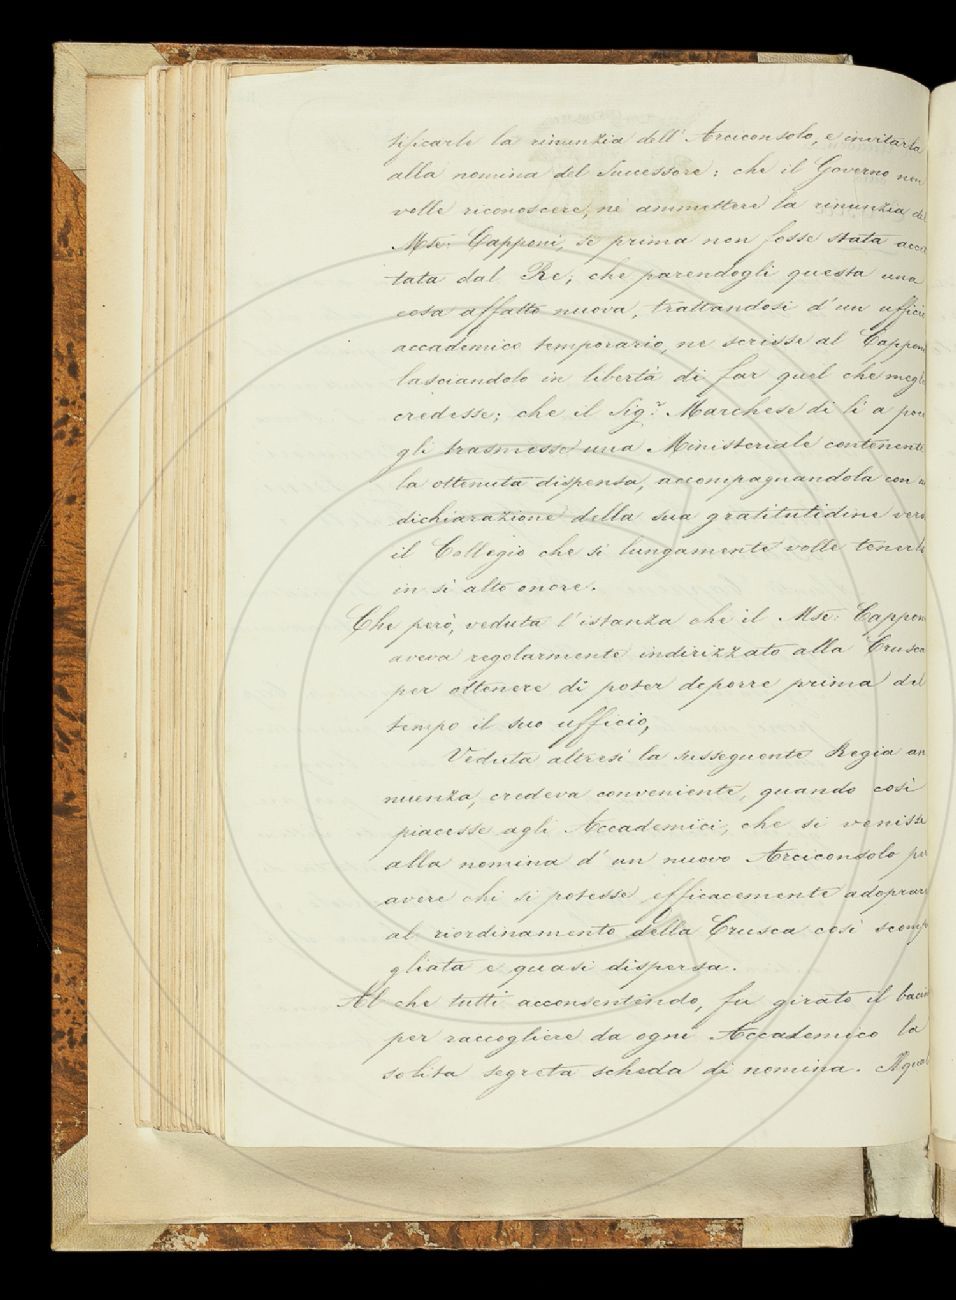 tificarle la rinunzia dell' Arciconsolo, e invitarla
alla nomina del Successore; che il Governo non
volle riconoscere, nè ammettere la rinunzia del
Mse: Capponi, se prima non fosse stata accet
tata dal Re; che parendogli questa una
cosa affatto nuova, trattandosi d'un ufficio
accademico temporario, ne scrisse al Capponi
lasciandolo in libertà di far quel che meglio
credesse; che il Sig.r Marchese di lì a poco
gli trasmesse una Ministeriale contenente
la ottenuta dispensa, accompagnandola con
dichiarazione della sua gratitutidine verso
il Collegio che sì lungamente volle tenerlo
in sì alto onore.
Che però, veduta l'istanza che il Mse: Capponi
aveva regolarmente indirizzato alla Crusca
per ottenere di poter deporre prima del
tempo il suo ufficio,
Veduta altresì la susseguente Regia an
nuenza, credeva conveniente, quando così
piacesse agli Accademici, che si venisse
alla nomina d'un nuovo Arciconsolo per
avere chi si potesse efficacemente adoprare
al riordinamento della Crusca così scompi
gliata e quasi dispersa.
Al che tutti acconsentendo, fu girato il bacino
per raccogliere da ogni Accademico la
solita segreta scheda di nomina. Il qual